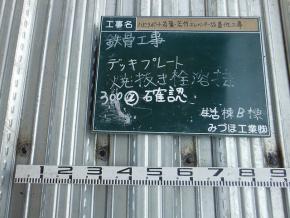 工事名
鉄骨工事
デッキプレート
焼抜き栓溶接
300② 確認
B棟
みづほ工業㈱
1 2 3 4 5 6 7 8 9